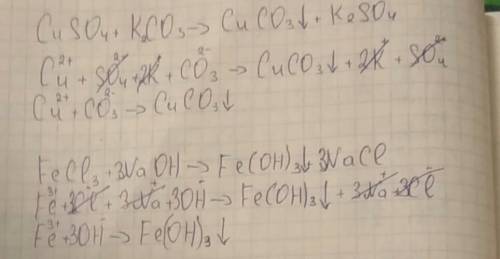 CuSO₄ + K₂CO₃ → CuCO₃↓ + K₂SO₄
Cu²⁺ + SO₄²⁻ + 2K⁺ + CO₃²⁻ → CuCO₃↓ + 2K⁺ + SO₄²⁻
Cu²⁺ + CO₃²⁻ → CuCO₃↓
FeCl₃ + 3NaOH → Fe(OH)₃↓ 3NaCl
Fe³⁺ + 3Cl⁻ + 3Na⁺ + 3OH⁻ → Fe(OH)₃↓ + 3Na⁺ + 3Cl⁻
Fe³⁺ + 3OH⁻ → Fe(OH)₃↓